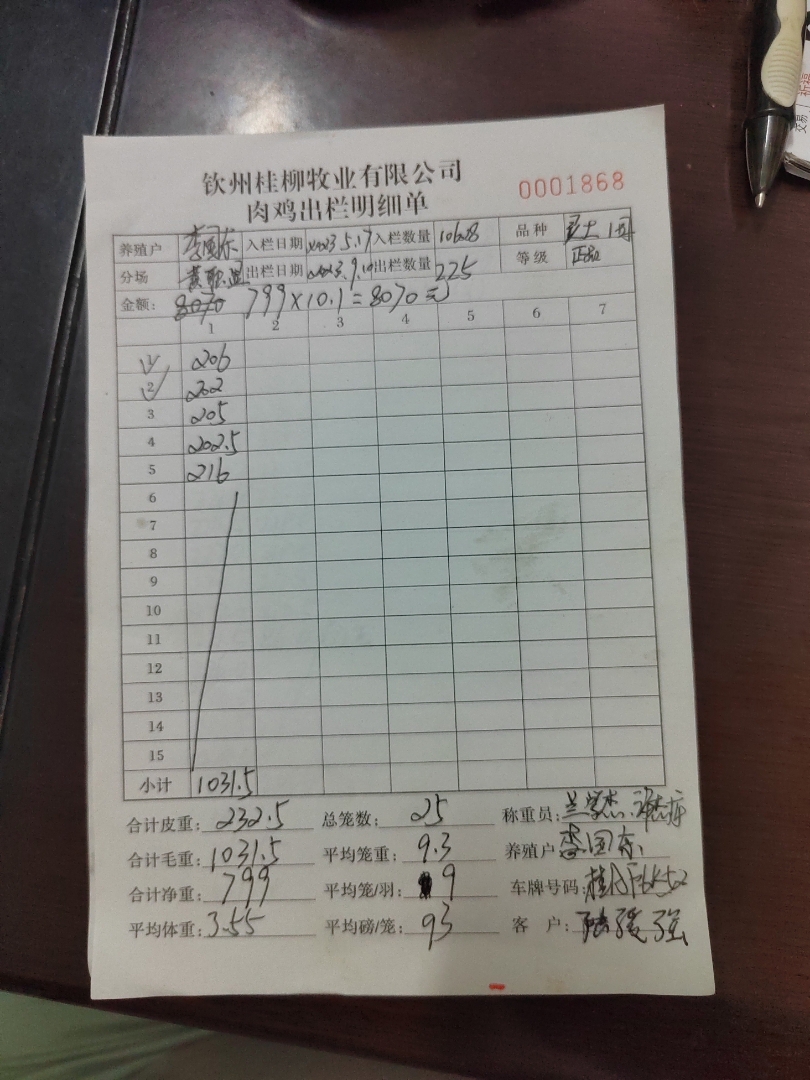 钦州桂柳牧业有限公司
0001868
肉鸡出栏明细单
养殖户 李国东 入栏日期 2023.5.17 入栏数量 品种
分场 出栏日期 2023.9.10 出栏数量 225 等级 正品
金额: 8070 799×10.1=8070元
1 2 3 4 5 6 7
1 206
2 202
3 205
4 202.5
5 216
6
7
8
9
10
11
12
13
14
15
小计 1031.5
合计皮重: 232.5 总笼数: 25 称重员:
合计毛重: 1031.5 平均笼重: 9.3 养殖户: 李国东
合计净重: 799 平均笼/羽: 9 车牌号码:
平均体重: 3.55 平均磅/笼: 93 客户:
祈福
交易